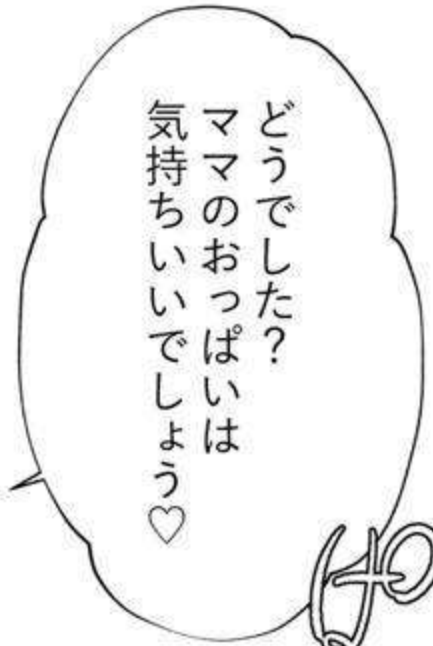 どうでした？
ママのおっぱいは
気持ちいいでしょう♡